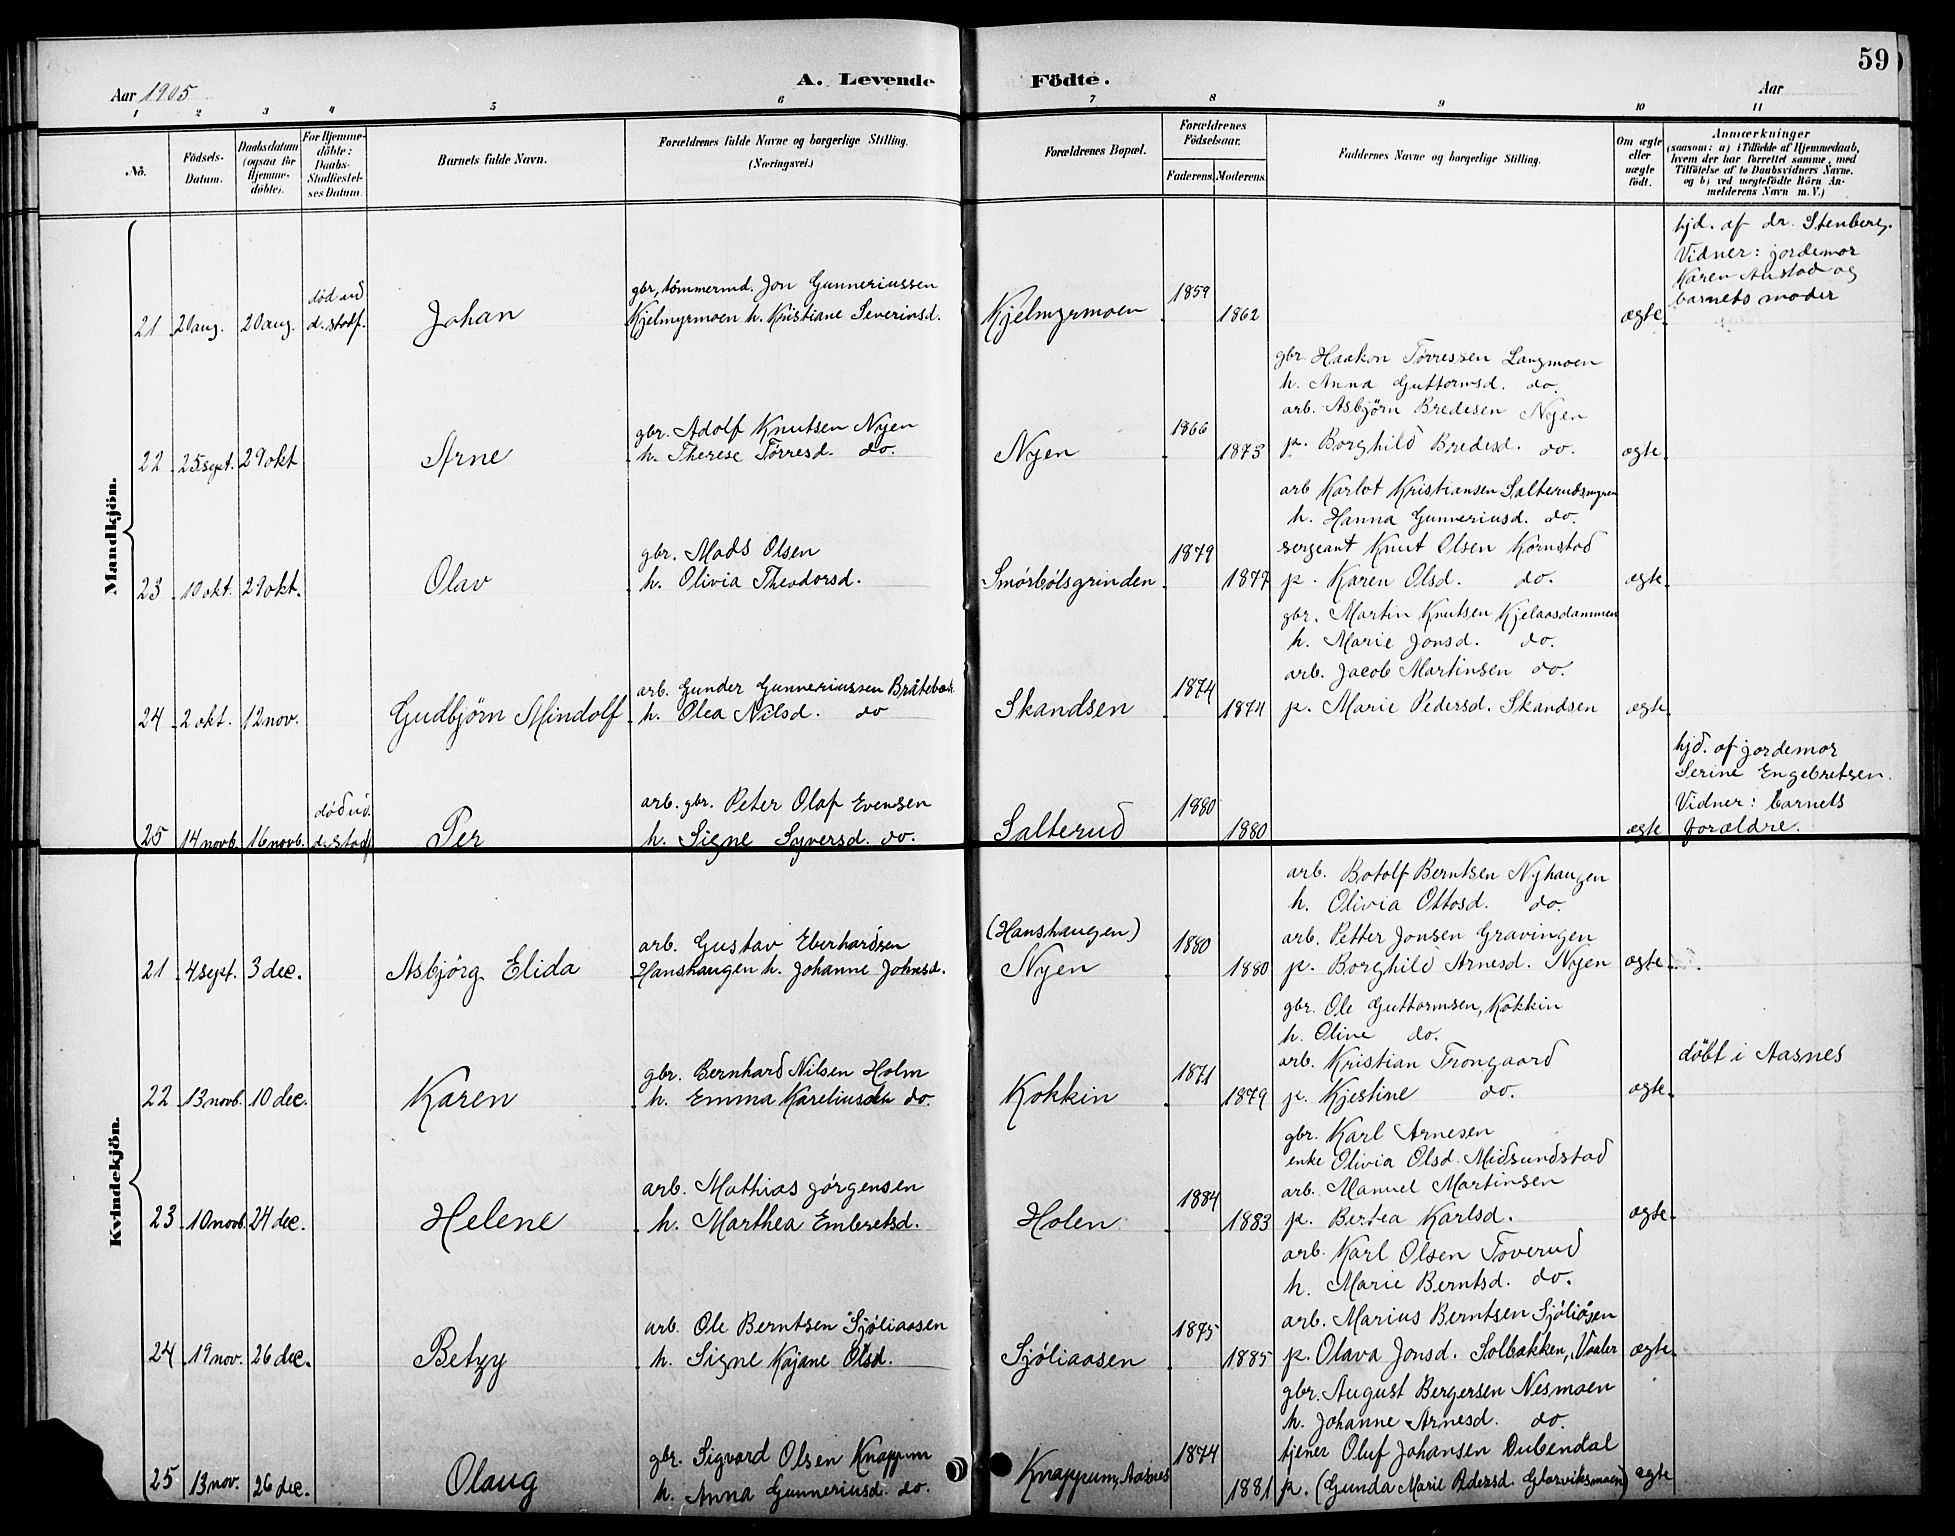 59
Aar 1905
A. Levende Födte.
Aar
1 2 3 4 5 6 7 8 9 10 11
No.
Födsels-Datum.
Daabsdatum (ogsaa for Hjemme-döbte).
For Hjemme-döbte: Daabs-Stadfæstel-ses Datum.
Barnets fulde Navn.
Forældrenes fulde Navne og borgerlige Stilling. (Næringsvei.)
Forældrenes Bopæl.
Forældrenes Födselsaar.
Faderens. Moderens.
Faddernes Navne og borgerlige Stilling.
Om ægte eller uægte födt.
Anmærkninger
(saasom: a) i Tilfælde af Hjemmedaab, hvem der har forrettet samme, med Tilföielse af to Daabsvidners Navne, og b) ved uægtefödte Börn An-melderens Navn m. V.)
Mandkjön.
21 20 aug. 20 aug. død ud. d. stadf. Johan
gbr, tømmermd. Jon Gunneriussen
Kjelmyrmoen h. Kristiane Severinsd.
Kjelmyrmoen 1859 1862 ægte
hjd. af dr. Stenberg.
Vidner: jordemor
Karen Anstad og
barnets moder
22 25 sept. 29 okt Arne
gbr. Adolf Knutsen Nyen
h. Therese Tørresd. do.
Nyen 1866 1873
gbr. Haakon Tørressen Langmoen
h. Anna Guttormsd. do.
arb. Asbjørn Bredesen Nyen
p. Borghild Bredesd. do. ægte
23 10 okt. 29 okt. Olav
gbr. Mads Olsen
h. Olivia Theodorsd.
Smørbølsgrinden 1879 1877
arb Karlot Kristiansen Salterudsmyren
h. Hanna Gunneriusd. do.
sergeant Knut Olsen Kornstad
p. Karen Olsd. do. ægte
24 2 okt. 12 nov. Gudbjörn Mindolf
arb. Gunder Gunneriussen
h. Olea Nilsd. do
Skandsen 1874 1874
gbr. Martin Knutsen Kjelaasdammen
h. Marie Jonsd. do.
arb. Jacob Martinsen do.
p. Marie Pedersd. Skandsen ægte
25 14 novb. 16 novb. død ud. d. stadf. Per
arb. gbr. Peter Olaf Evensen
h. Signe Syversd. do.
Salterud 1880 1880 ægte
hjd. af jordemor
Serine Engebretsen.
Vidner: barnets
forældre.
Kvindekjön.
21 4 sept. 3 dec. Asbjörg Elida
arb. Gustav Eberhardsen
Hanshaugen h. Johanne Johnsd.
(Hanshaugen)
Nyen 1880 1880
arb. Botolf Berntsen Nyhaugen
h. Olivia Ottosd. do.
arb. Petter Jonsen Gravingen
p. Borghild Arnesd. Nyen ægte
22 13 novb. 10 dec. Karen
gbr. Bernhard Nilsen Holm
h. Emma Kareliusdtr do.
Kokkin 1871 1879
gbr. Ole Guttormsen, Kokkin
h. Oline do.
arb. Kristian Trongaard
p. Kjestine do. ægte
døbt i Aasnes
23 10 novb. 24 dec. Helene
arb. Mathias Jørgensen
h. Marthea Embretsd.
Holen 1884 1883
gbr. Karl Arnesen
enke Olivia Olsd. Midsundstad
arb. Manuel Martinsen
p. Bertea Karlsd. ægte
24 19 nov. 26 dec. Betzy
arb. Ole Berntsen Sjøliaasen
h. Signe Kajane Olsd.
Sjøliaasen 1875 1885
arb. Karl Olsen Toverud
h. Marie Berntsd. do.
arb. Marius Berntsen Sjøliåsen
p. Olava Jonsd. Solbakken, Vaaler ægte
25 13 nov. 26 dec. Olaug
gbr. Sigvard Olsen Knappum
h. Anna Gunneriusd. do.
Knappum, Aasnes 1874 1881
gbr. August Bergersen Nesmoen
h. Johanne Arnesd. do.
tjener Oluf Johansen Dubendal
p. (Gunda Marie Pedersd. Glorviksmoen) ægte